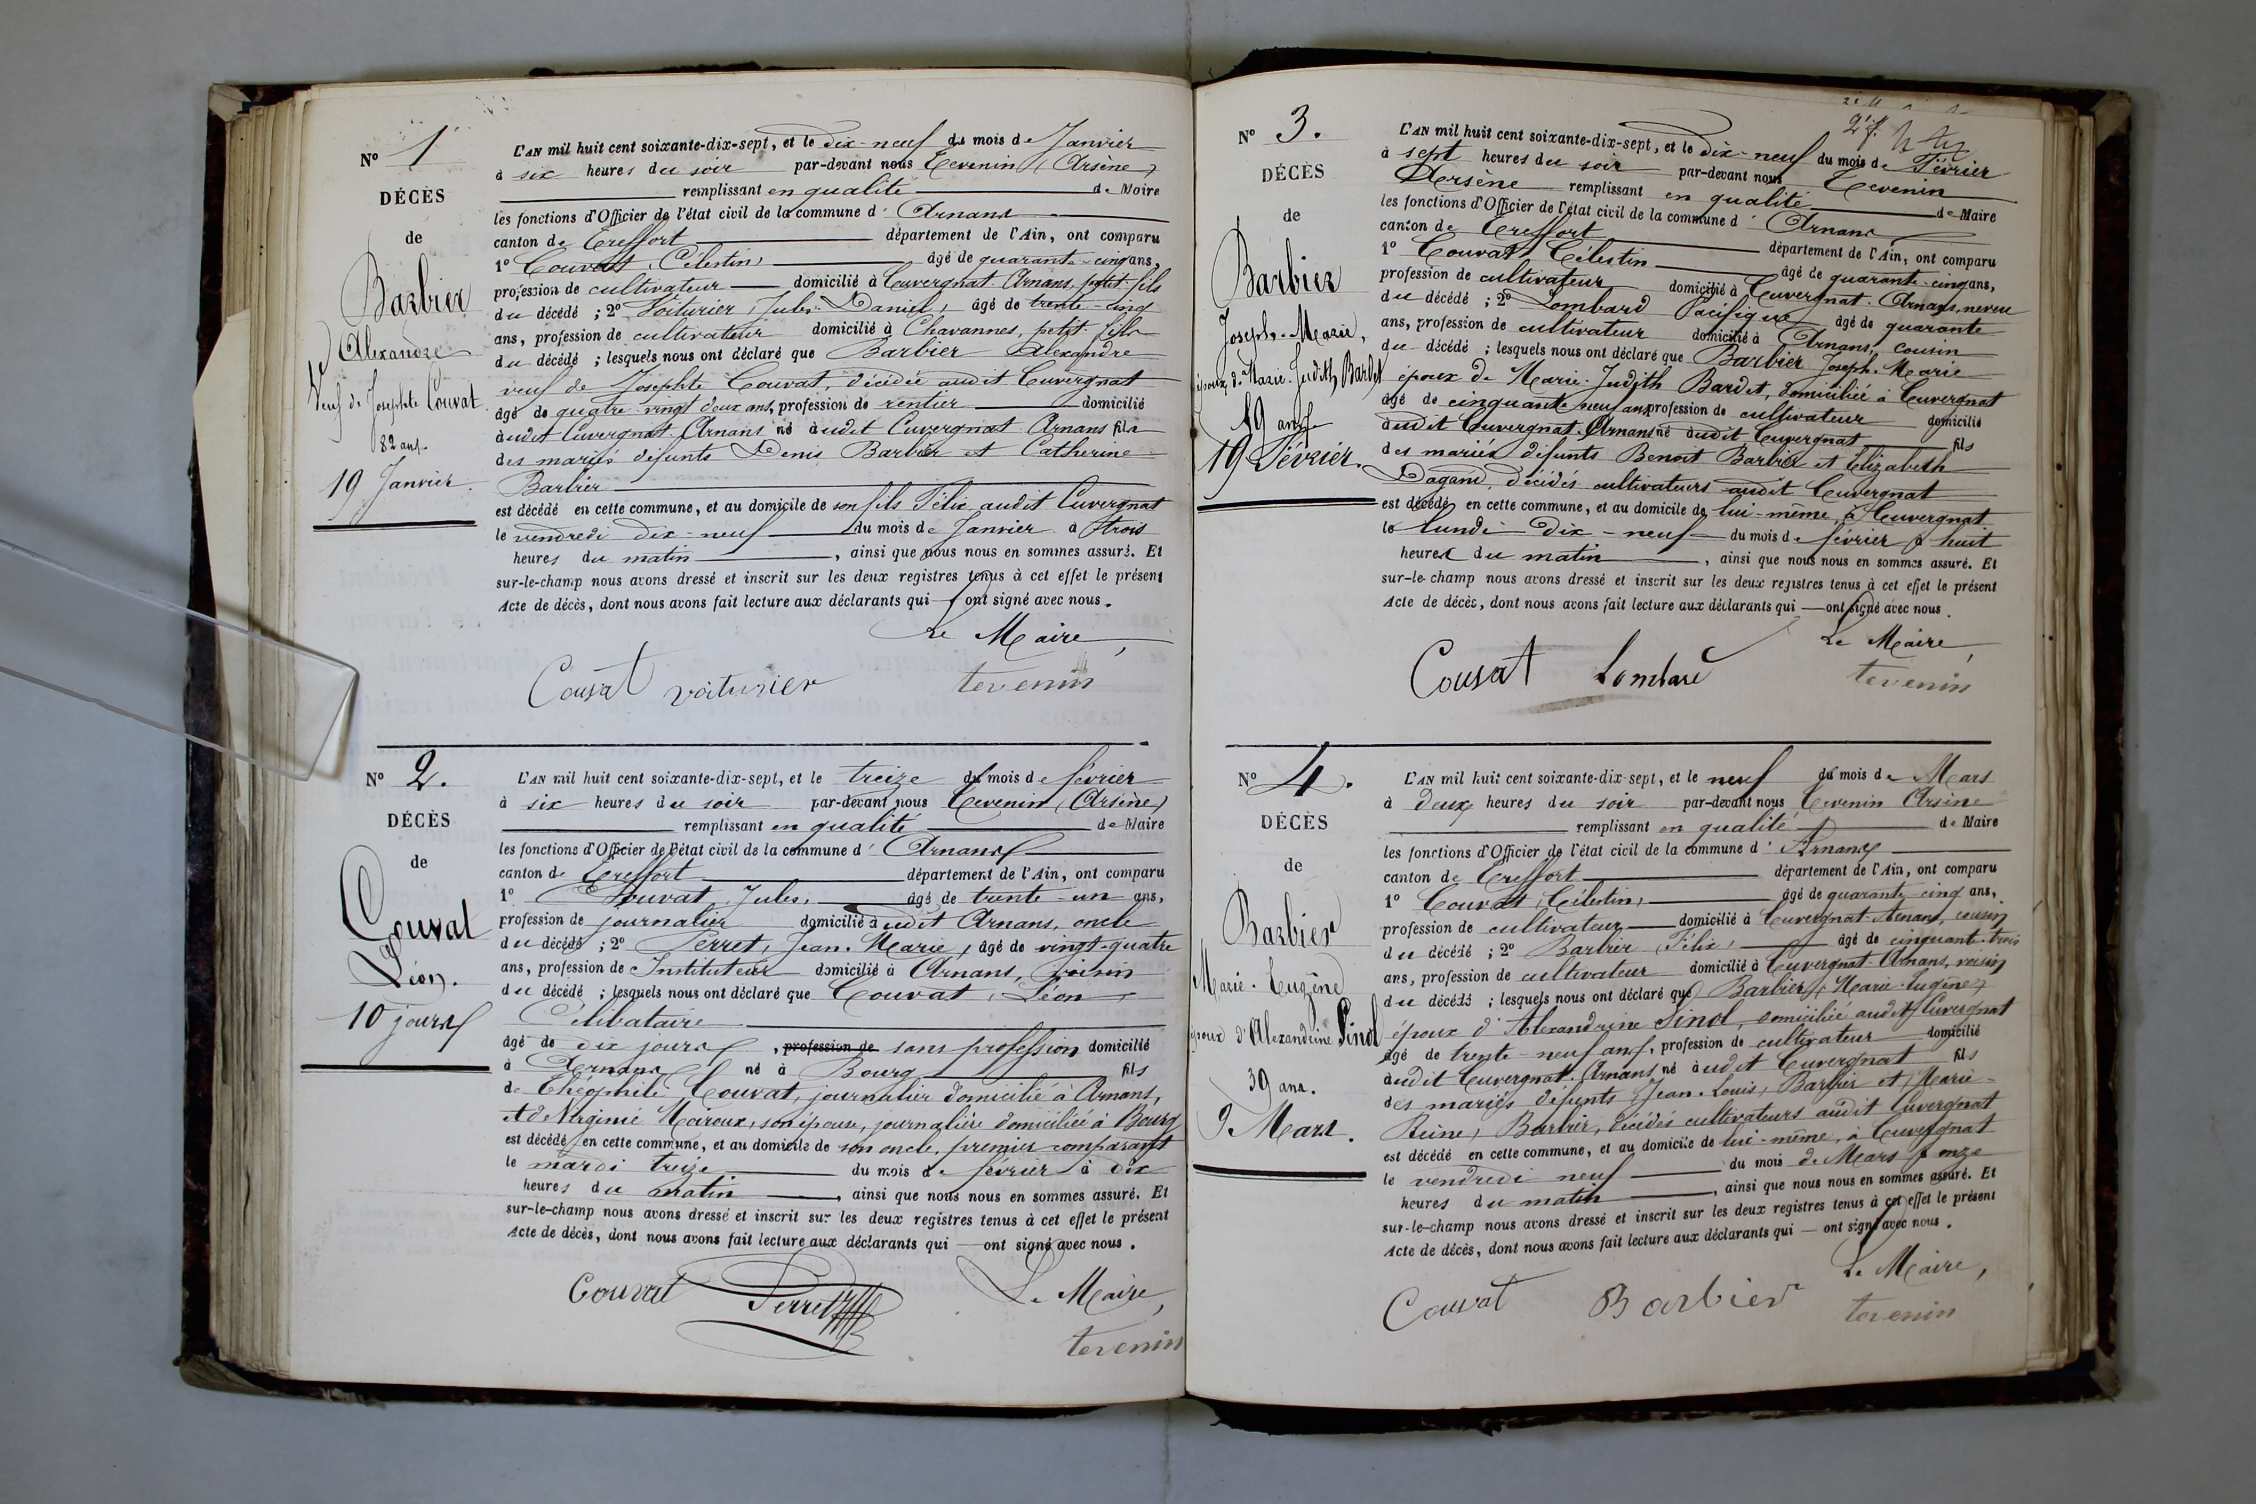 N° 1
DÉCÈS
de
Barbier
Alexandre
Veuf de Josephte Couvat
82 ans.
19 Janvier.
L'AN mil huit cent soixante-dix-sept, et le dix-neuf du mois de Janvier
à six heures du soir par-devant nous Tevenin (Arsène)
remplissant en qualité de Maire
les fonctions d'Officier de l'état civil de la commune d' Arnans
canton de Treffort département de l'Ain, ont comparu
1° Couvat, Célestin, âgé de quarante-cinq ans,
profession de cultivateur domicilié à Cuvergnat-Arnans, petit-fils
du décédé ; 2° Voiturier, Jules Daniel, âgé de trente-cinq
ans, profession de cultivateur domicilié à Chavannes, petit fils
du décédé ; lesquels nous ont déclaré que Barbier Alexandre
veuf de Josephte Couvat, décédée audit Cuvergnat
âgé de quatre-vingt deux ans, profession de rentier domicilié
audit Cuvergnat-Arnans né audit Cuvergnat-Arnans fils
des mariés défunts Denis Barbier et Catherine
Barbier
est décédé en cette commune, et au domicile de son fils Félix audit Cuvergnat
le vendredi dix-neuf du mois de Janvier à trois
heures du matin, ainsi que nous nous en sommes assuré. Et
sur-le-champ nous avons dressé et inscrit sur les deux registres tenus à cet effet le présent
Acte de décès, dont nous avons fait lecture aux déclarants qui ont signé avec nous.
Le Maire,
Couvat voiturier tevenin
N° 2.
DÉCÈS
de
Couvat
Léon.
10 jours
L'AN mil huit cent soixante-dix-sept, et le treize du mois de février
à six heures du soir par-devant nous Tevenin (Arsène)
remplissant en qualité de Maire
les fonctions d'Officier de l'état civil de la commune d' Arnans
canton de Treffort département de l'Ain, ont comparu
1° Couvat, Jules, âgé de trente-un ans,
profession de journalier domicilié audit Arnans, oncle
du décédé ; 2° Perret, Jean-Marie, âgé de vingt-quatre
ans, profession de Instituteur domicilié à Arnans, voisin
du décédé ; lesquels nous ont déclaré que Couvat, Léon
Célibataire
âgé de dix jours, profession de sans profession domicilié
à Arnans né à Bourg fils
de Théophile Couvat, journalier domicilié à Arnans,
et de Virginie Moiroux, son épouse, journalière domiciliée à Bourg
est décédé en cette commune, et au domicile de son oncle, premier comparant
le mardi treize du mois de février à dix
heures du matin, ainsi que nous nous en sommes assuré. Et
sur-le-champ nous avons dressé et inscrit sur les deux registres tenus à cet effet le présent
Acte de décès, dont nous avons fait lecture aux déclarants qui ont signé avec nous.
Le Maire,
Couvat Perret
tevenin
N° 3.
DÉCÈS
de
Barbier
Joseph-Marie,
époux de Marie-Judith Bardet
59 ans
19 Février.
L'AN mil huit cent soixante-dix-sept, et le dix-neuf du mois de Février
à sept heures du soir par-devant nous Tevenin
Arsène remplissant en qualité de Maire
les fonctions d'Officier de l'état civil de la commune d' Arnans
canton de Treffort département de l'Ain, ont comparu
1° Couvat, Célestin âgé de quarante-cinq ans,
profession de cultivateur domicilié à Cuvergnat-Arnans, neveu
du décédé ; 2° Lombard Pacifique âgé de quarante
ans, profession de cultivateur domicilié à Arnans, cousin
du décédé ; lesquels nous ont déclaré que Barbier Joseph-Marie
époux de Marie-Judith Bardet, domiciliée à Cuvergnat
âgé de cinquante-neuf ans profession de cultivateur domicilié
audit Cuvergnat-Arnans né audit Cuvergnat fils
des mariés défunts Benoit Barbier et Elizabeth
Dagand, décédés cultivateurs audit Cuvergnat
est décédé en cette commune, et au domicile de lui-même, à Cuvergnat
le lundi dix-neuf du mois de février à huit
heures du matin, ainsi que nous nous en sommes assuré. Et
sur-le-champ nous avons dressé et inscrit sur les deux registres tenus à cet effet le présent
Acte de décès, dont nous avons fait lecture aux déclarants qui ont signé avec nous.
Le Maire,
Couvat Lombard tevenin
N° 4.
DÉCÈS
de
Barbier
Marie-Eugène
époux d'Alexandrine Pinol
39 ans.
9 Mars.
L'AN mil huit cent soixante-dix-sept, et le neuf du mois de Mars
à deux heures du soir par-devant nous Tevenin Arsène
remplissant en qualité de Maire
les fonctions d'Officier de l'état civil de la commune d' Arnans
canton de Treffort département de l'Ain, ont comparu
1° Couvat, Célestin, âgé de quarante-cinq ans,
profession de cultivateur domicilié à Cuvergnat-Arnans, cousin
du décédé ; 2° Barbier (Félix) âgé de cinquante-trois
ans, profession de cultivateur domicilié à Cuvergnat-Arnans, voisin
du décédé ; lesquels nous ont déclaré que Barbier (Marie-Eugène)
époux d'Alexandrine Pinol, domiciliée audit Cuvergnat
âgé de trente-neuf ans, profession de cultivateur domicilié
audit Cuvergnat-Arnans né audit Cuvergnat fils
des mariés défunts (Jean-Louis) Barbier et (Marie-
Reine) Barbier, décédés cultivateurs audit Cuvergnat
est décédé en cette commune, et au domicile de lui-même, à Cuvergnat
le vendredi neuf du mois de Mars à onze
heures du matin, ainsi que nous nous en sommes assuré. Et
sur-le-champ nous avons dressé et inscrit sur les deux registres tenus à cet effet le présent
Acte de décès, dont nous avons fait lecture aux déclarants qui ont signé avec nous.
Le Maire,
Couvat Barbier tevenin